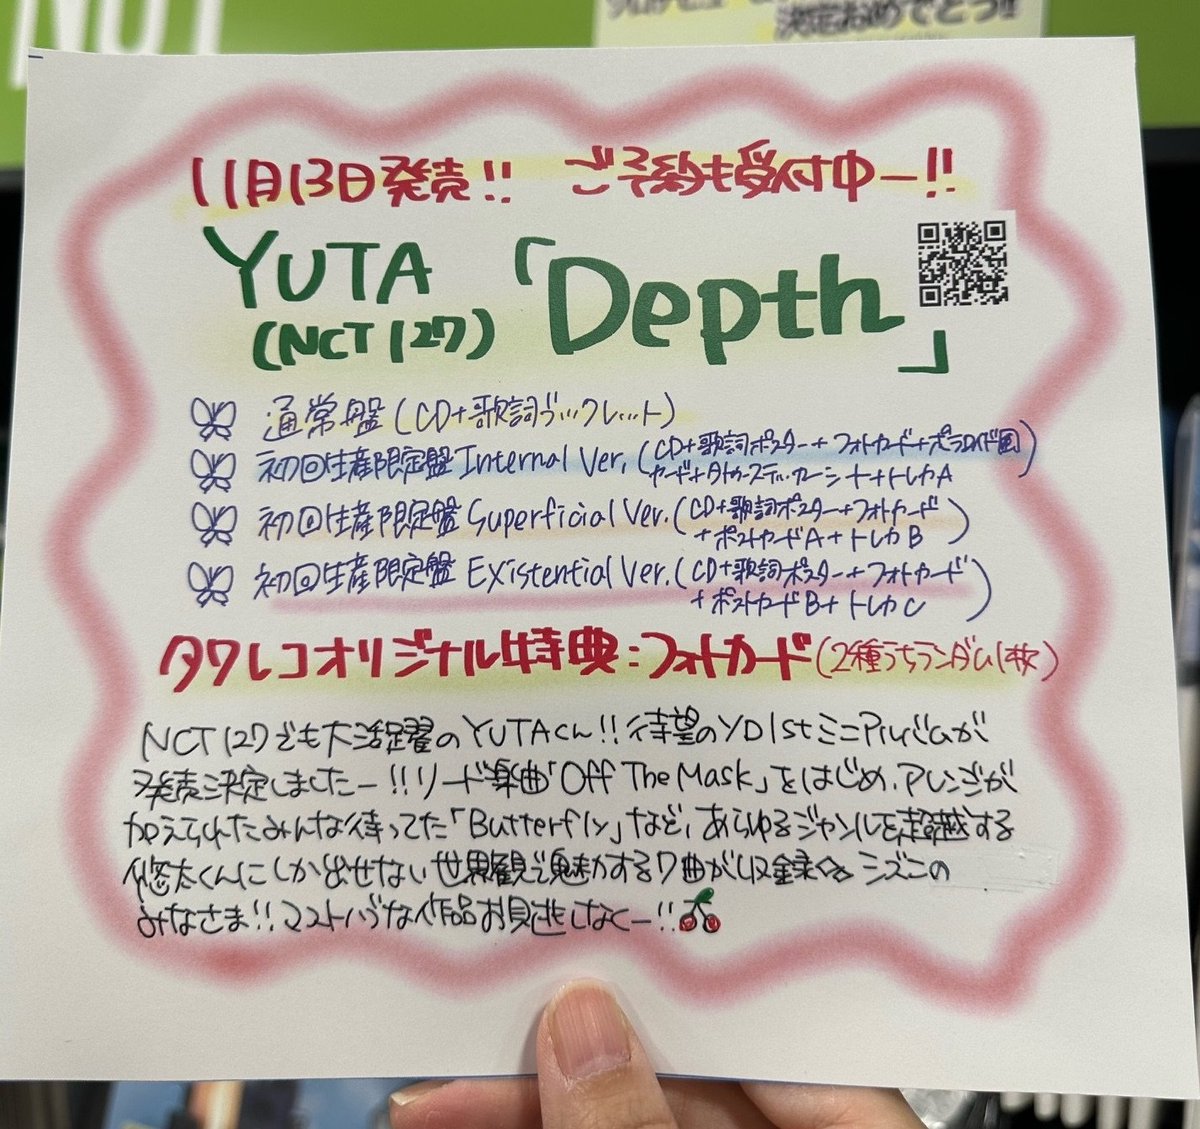 NCT
決定おめでとう!!
11月13日発売!! ご予約も受付中ー!!
YUTA
(NCT 127)
「Depth」
通常盤(CD+歌詞ブックレット)
初回生産限定盤 Internal Ver.(CD+歌詞ポスター+フォトカード+ポラロイド風
カード+タトゥーステッカーシート+トレカA
初回生産限定盤 Superficial Ver.(CD+歌詞ポスター+フォトカード
+ポストカードA+トレカB)
初回生産限定盤 Existential Ver.(CD+歌詞ポスター+フォトカード
+ポストカードB+トレカC)
タワレコオリジナル特典:フォトカード(2種うちランダム1枚)
NCT 127でも大活躍のYUTAくん!!待望のソロ1stミニアルバムが
発売決定しましたー!!リード楽曲「Off The Mask」をはじめ、アレンジが
加えられたみんな待ってた「Butterfly」など、あらゆるジャンルを超越する
悠太くんにしか出せない世界観で魅力する7曲が収録♪ シズニの
みなさま!!マストバイな作品お見逃しなくー!!